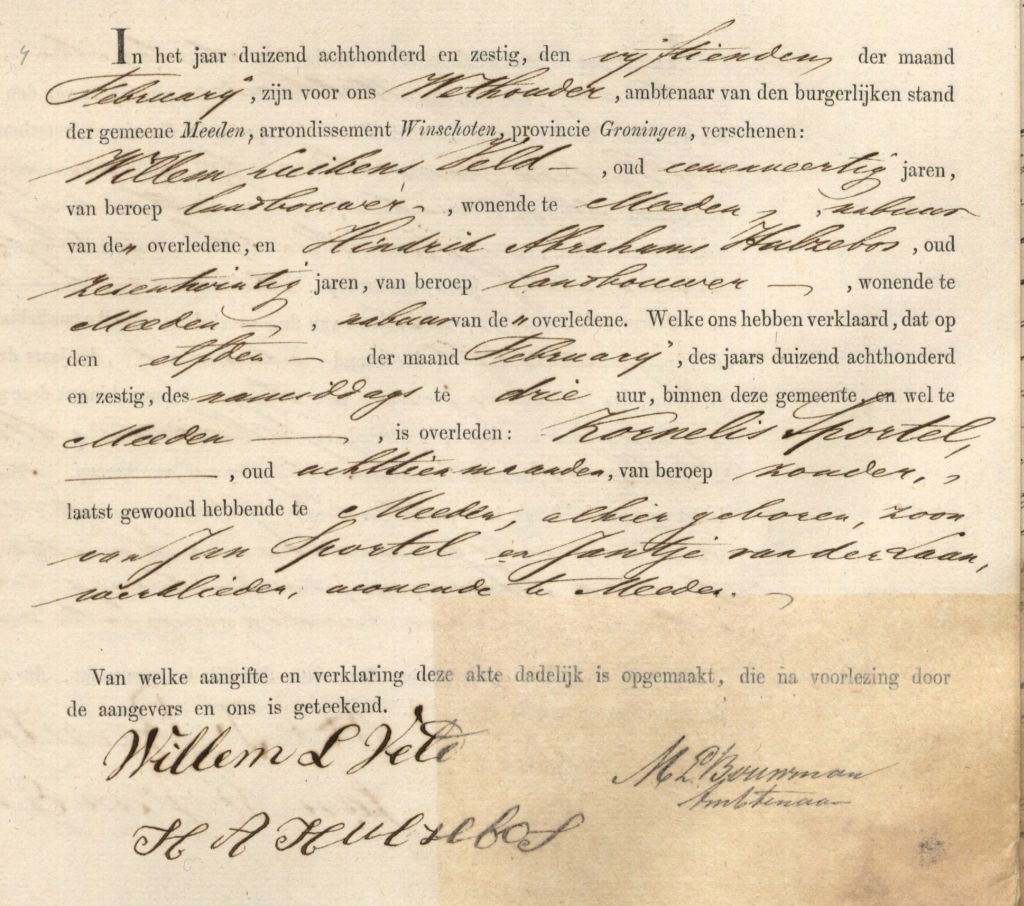 4
In het jaar duizend achthonderd en zestig, den vijftienden der maand
February, zijn voor ons Wethouder, ambtenaar van den burgerlijken stand
der gemeene Meeden, arrondissement Winschoten, provincie Groningen, verschenen:
Willem Luikens Veld —, oud eenenveertig jaren,
van beroep landbouwer —, wonende te Meeden, nabuur
van de " overledene, en Hindrik Abrahams Hulzebos, oud
zesentwintig jaren, van beroep landbouwer —, wonende te
Meeden —, nabuur van de " overledene. Welke ons hebben verklaard, dat op
den elfden — der maand February, des jaars duizend achthonderd
en zestig, des namiddags te drie uur, binnen deze gemeente, en wel te
Meeden —, is overleden: Kornelis Sportel,
—, oud achttien maanden, van beroep zonder,
laatst gewoond hebbende te Meeden, alhier geboren, zoon
van Jan Sportel en Jantje van der Laan,
werklieden, wonende te Meeden.
Van welke aangifte en verklaring deze akte dadelijk is opgemaakt, die na voorlezing door
de aangevers en ons is geteekend.
Willem L Veld
M L Bouwman
Ambtenaar
H A Hulzebos